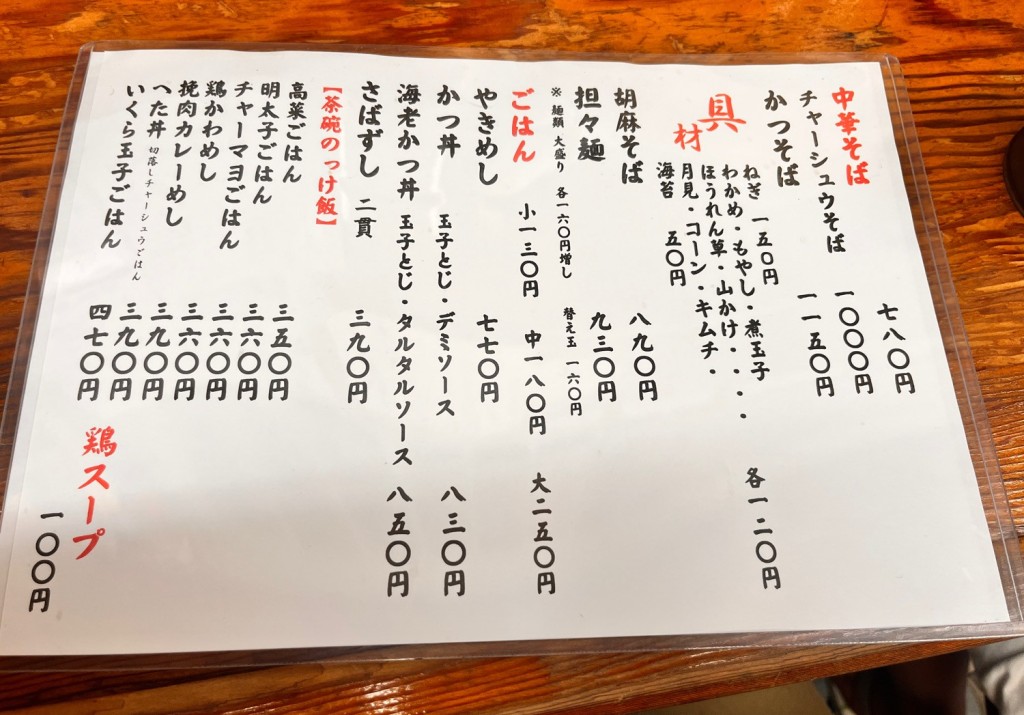 中華そば 七八〇円
チャーシュウそば 一〇〇〇円
かつそば 一一五〇円
具材
ねぎ 一五〇円
わかめ・もやし・煮玉子
ほうれん草・山かけ・・・・ 各一二〇円
月見・コーン・キムチ・
海苔 五〇円
胡麻そば 八九〇円
担々麺 九三〇円
※麺類 大盛り 各一六〇円増し 替え玉 一六〇円
ごはん 小一三〇円 中一八〇円 大二五〇円
やきめし 七七〇円
かつ丼 玉子とじ・デミソース 八三〇円
海老かつ丼 玉子とじ・タルタルソース 八五〇円
さばずし 二貫 三九〇円
【茶碗のっけ飯】
高菜ごはん 三五〇円
明太子ごはん 三六〇円
チャーマヨごはん 三六〇円
鶏かわめし 三六〇円
挽肉カレーめし 三九〇円
へた丼 切落しチャーシュウごはん 三九〇円
いくら玉子ごはん 四七〇円
鶏スープ 一〇〇円